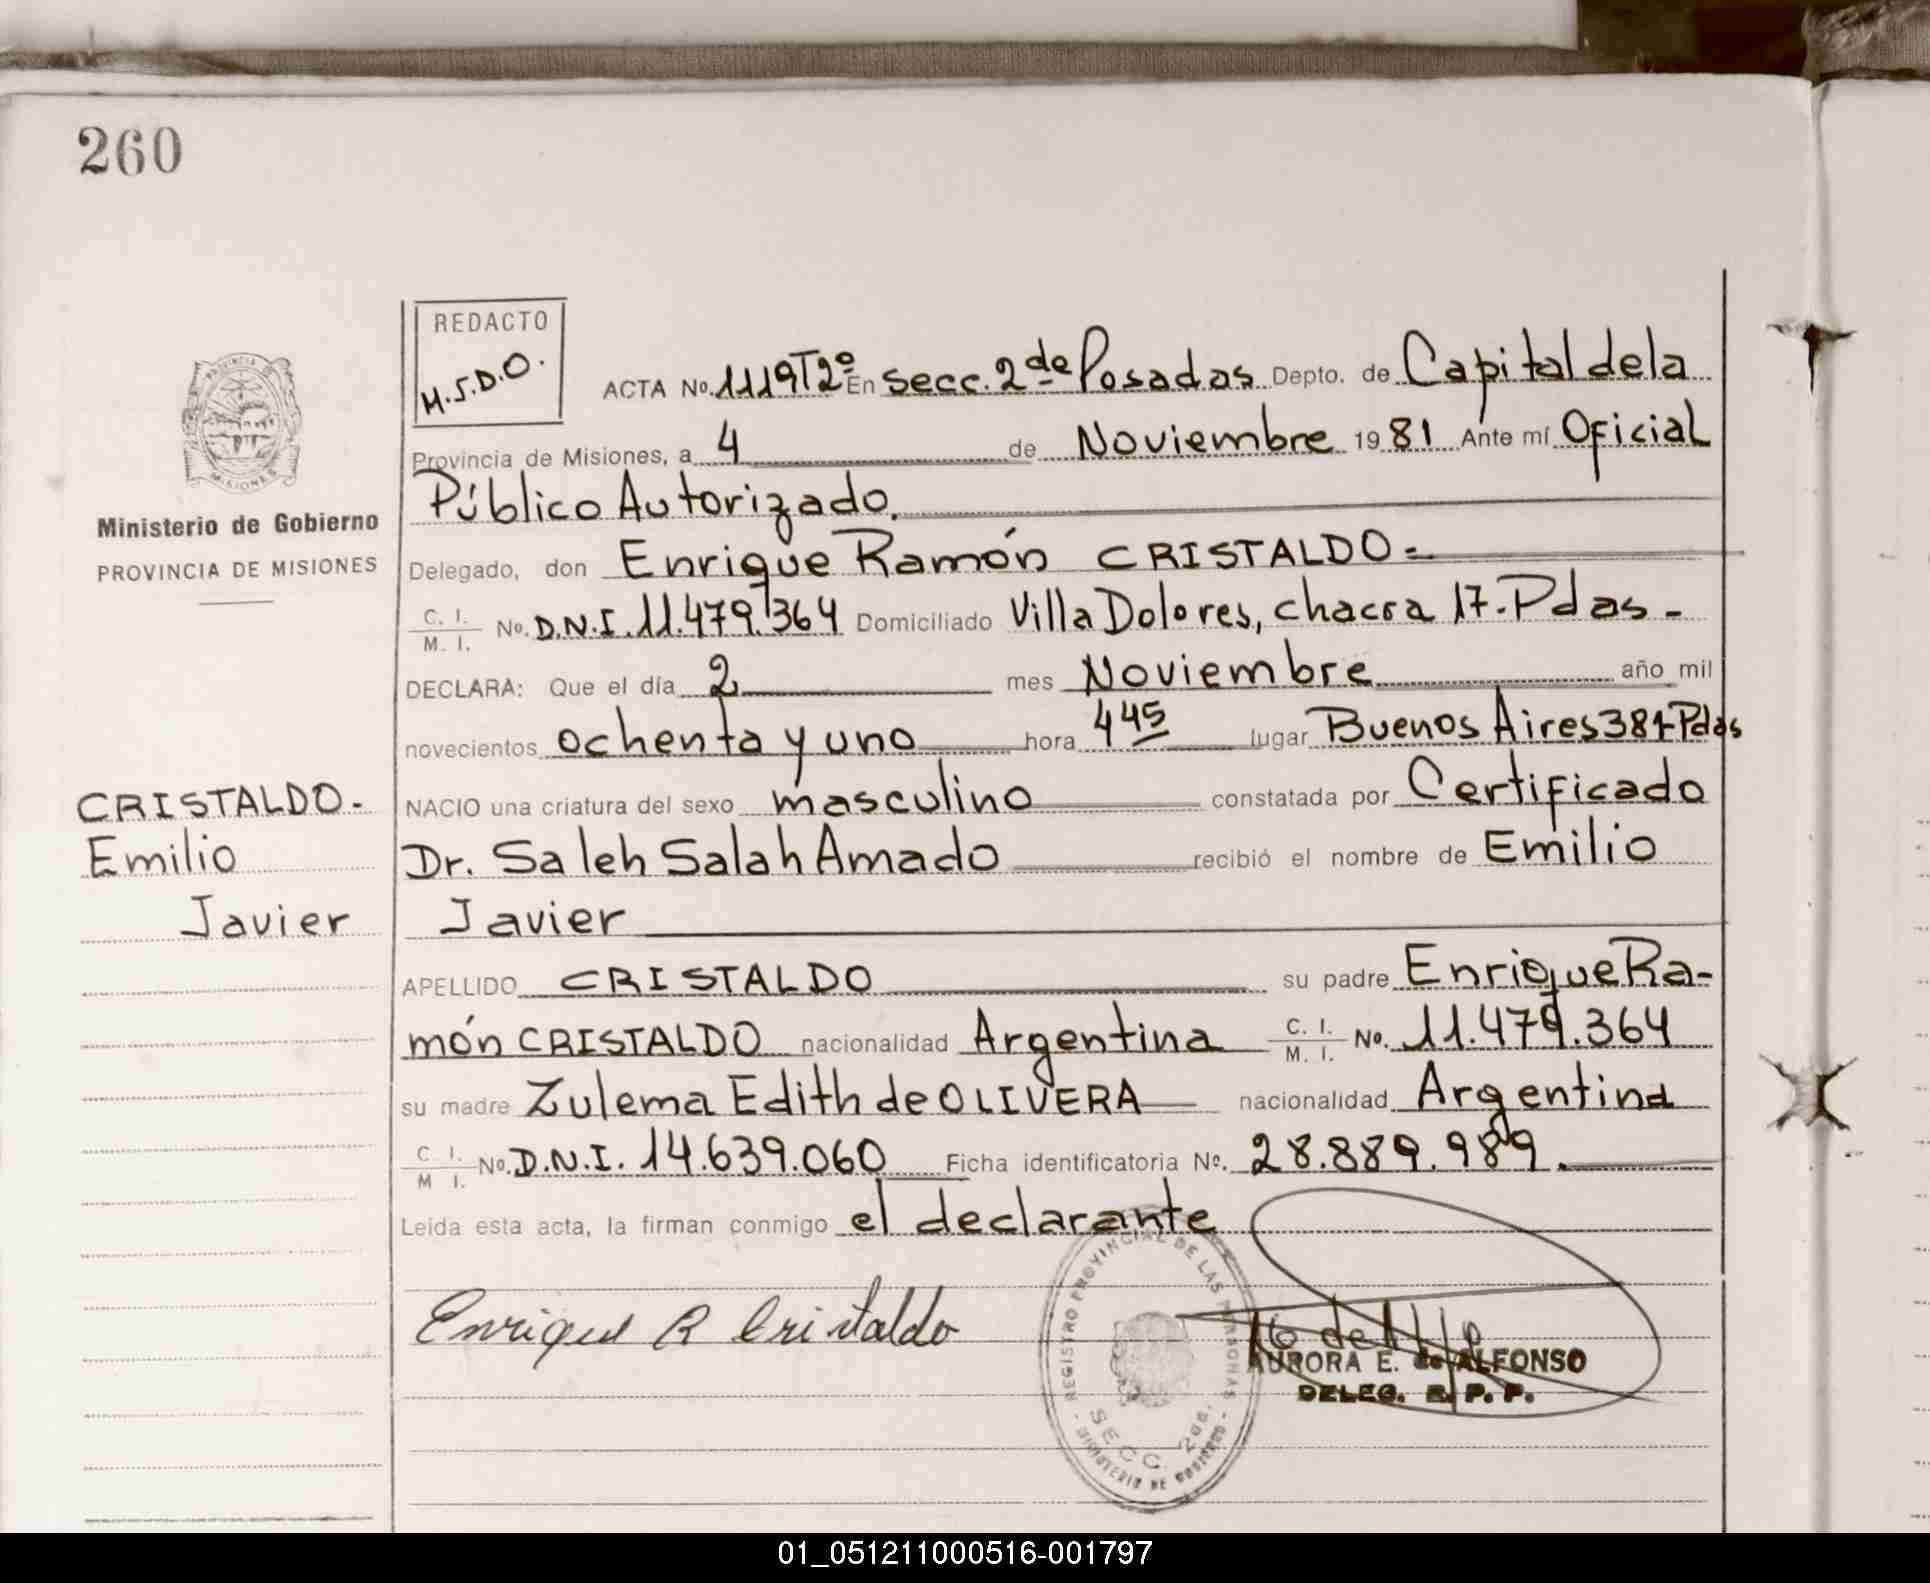 260
REDACTO
M.S.D.O.
ACTA No. 1119T2º En secc. 2 de Posadas Depto. de Capital dela
Provincia de Misiones, a 4 de Noviembre 1981 Ante mí Oficial
Público Autorizado.
Ministerio de Gobierno
PROVINCIA DE MISIONES
Delegado, don Enrique Ramón CRISTALDO=
C. I. / M. I. No. D.N.I. 11.479.364 Domiciliado Villa Dolores, chacra 17.-Pdas-
DECLARA: Que el día 2 mes Noviembre año mil
novecientos ochenta y uno hora 4 45 lugar Buenos Aires 384-Pdas
CRISTALDO-
Emilio
Javier
NACIO una criatura del sexo masculino constatada por Certificado
Dr. Saleh Salah Amado recibió el nombre de Emilio
Javier
APELLIDO CRISTALDO su padre Enrique Ra-
món CRISTALDO nacionalidad Argentina C. I. / M. I. No. 11.479.364
su madre Zulema Edith de OLIVERA nacionalidad Argentina
C. I. / M I. No. D.N.I. 14.639.060 Ficha identificatoria No. 28.889.989.
Leida esta acta, la firman conmigo el declarante
Enrique R Cristaldo
REGISTRO PROVINCIAL DE LAS PERSONAS
SECC. 2da.
MINISTERIO DE GOBIERNO
AURORA E. de ALFONSO
DELEG. R. P. P.
01_051211000516-001797